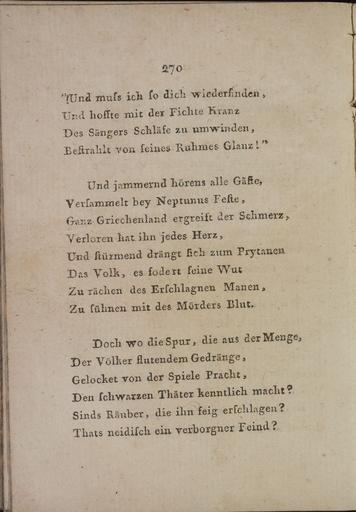 270
"Und muſs ich ſo dich wiederfinden,
Und hoffte mit der Fichte Kranz
Des Sängers Schläfe zu umwinden,
Beſtrahlt von ſeines Ruhmes Glanz!"
Und jammernd hörens alle Gäſte,
Verſammelt bey Neptunus Feſte,
Ganz Griechenland ergreift der Schmerz,
Verloren hat ihn jedes Herz,
Und ſtürmend drängt ſich zum Prytanen
Das Volk, es fodert ſeine Wut
Zu rächen des Erſchlagnen Manen,
Zu ſühnen mit des Mörders Blut.
Doch wo die Spur, die aus der Menge,
Der Völker flutendem Gedränge,
Gelocket von der Spiele Pracht,
Den ſchwarzen Thäter kenntlich macht?
Sinds Räuber, die ihn feig erſchlagen?
Thats neidiſch ein verborgner Feind?